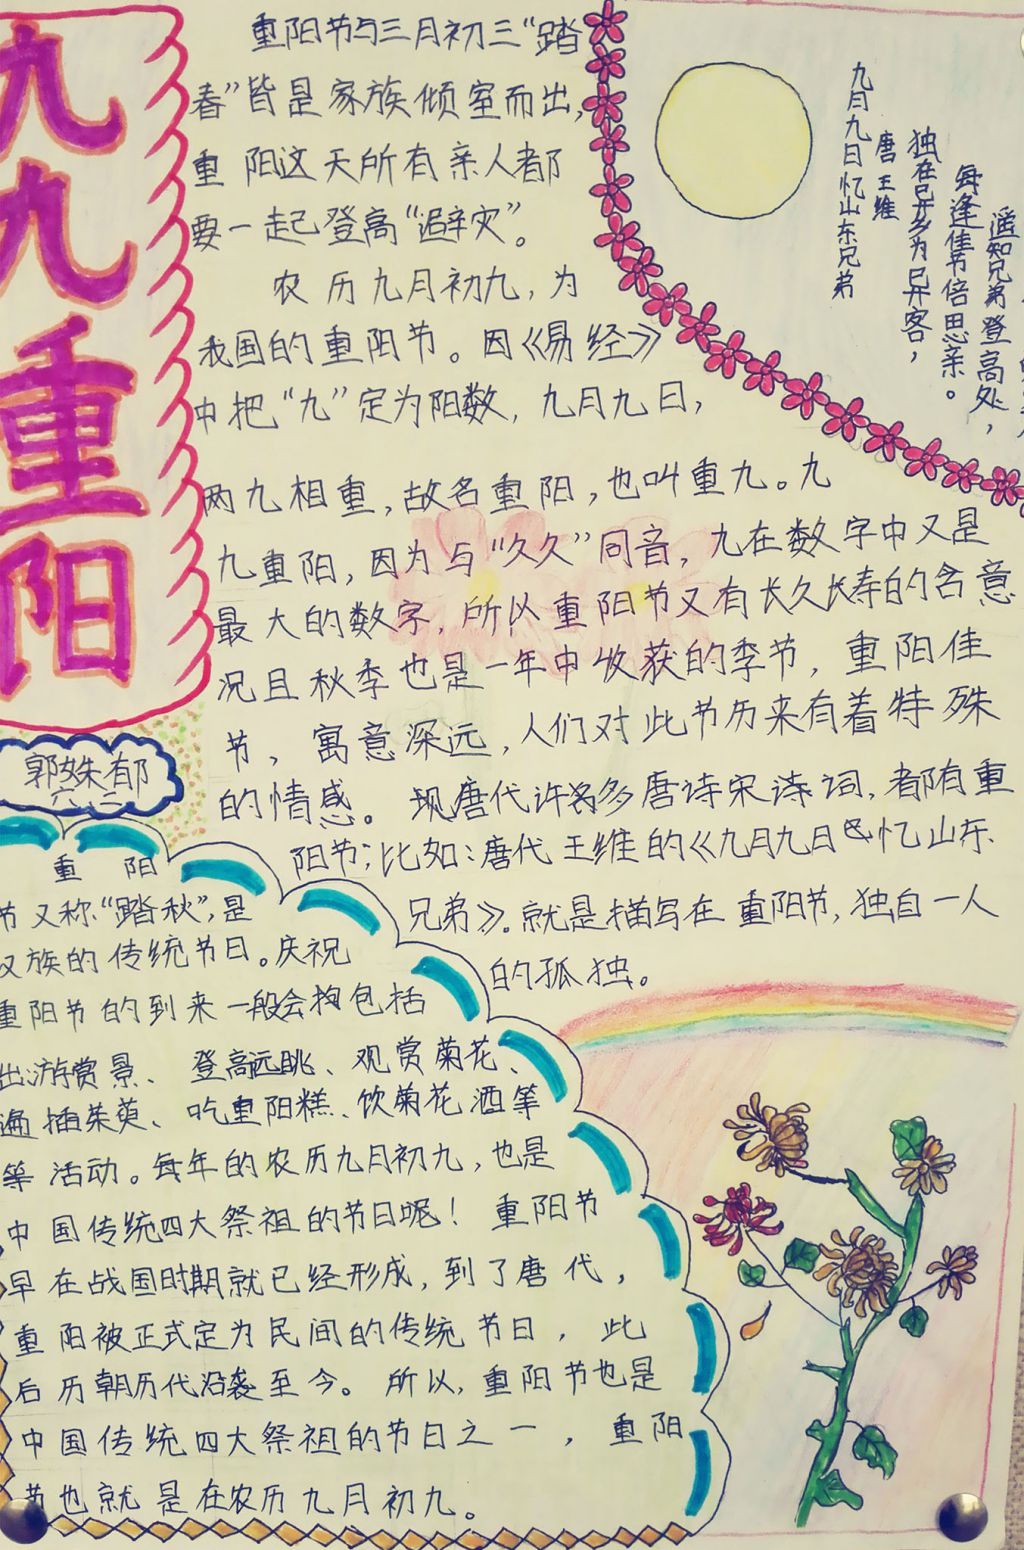 九九重阳
重阳节与三月初三“踏
春”皆是家族倾室而出,
重阳这天所有亲人都
要一起登高“避灾”。
农历九月初九,为
我国的重阳节。因《易经》
中把“九”定为阳数,九月九日,
两九相重,故名重阳,也叫重九。九
九重阳,因为与“久久”同音,九在数字中又是
最大的数字,所以重阳节又有长久长寿的含意
况且秋季也是一年中收获的季节,重阳佳
节,寓意深远,人们对此节历来有着特殊
的情感。现唐代许多唐诗宋诗词,都有重
阳节;比如:唐代王维的《九月九日忆山东
兄弟》。就是描写在重阳节,独自一人
的孤独。
九月九日忆山东兄弟
唐 王维
独在异乡为异客,
每逢佳节倍思亲。
遥知兄弟登高处,
郭姝郁
六二
重阳
节又称“踏秋”,是
汉族的传统节日。庆祝
重阳节的到来一般会包括
出游赏景、登高远眺、观赏菊花、
遍插茱萸、吃重阳糕、饮菊花酒等
等活动。每年的农历九月初九,也是
中国传统四大祭祖的节日呢!重阳节
早在战国时期就已经形成,到了唐代,
重阳被正式定为民间的传统节日,此
后历朝历代沿袭至今。所以,重阳节也是
中国传统四大祭祖的节日之一,重阳
节也就是在农历九月初九。